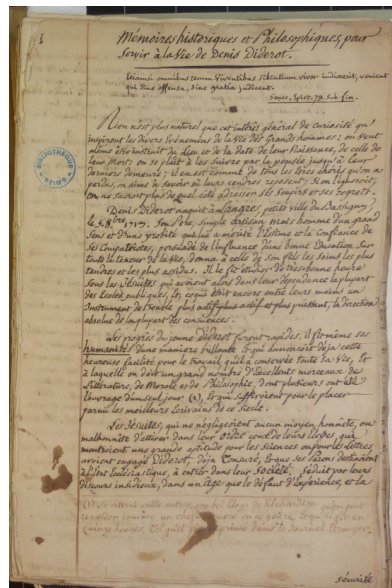 1
Mémoires historiques et Philosophiques, pour
servir à la Vie de Denis Diderot.
Etiamsi omnibus tecum viventibus silentium livor indixerit, venient
qui sine offensa, sine gratia judicent.
Senec. Epist. 79. sub fin.
Rien n'est plus naturel que cet intérêt général de curiosité qu'
inspirent les divers événemens de la vie des Grands hommes; on veut
même être instruit du lieu et de la date de leur Naissance, de celle de
leur Mort; on se plait à les suivre par la pensée jusqu'à leur
dernière demeure; il en est comme de tous les êtres chéris qu'on a
perdus, on aime à savoir où leurs cendres reposent; si on l'ignoroit,
on ne sauroit plus de quel côté adresser ses soupirs et ses regrets.
BIBLIOTHÈQUE
REIMS
Denis Diderot naquit à Langres, petite ville du Bassigny,
le 1713. Son Père, simple artisan, mais homme d'un grand
sens et d'une probité qui lui a mérité l'estime et la confiance de
ses Compatriotes, persuadé de l'influence d'une bonne Education sur
toute la teneur de la vie, donna à celle de son fils les soins les plus
tendres et les plus assidus. Il le fit étudier de très bonne heure
sous les Jésuites qui avoient alors dans leur dépendance la plupart
des Ecoles publiques, et ce qui étoit encore entre leurs mains un
Instrument de trouble plus actif et plus puissant, la direction
absolue de la plupart des consciences.
Les progrès du jeune Diderot furent rapides, il fit même ses
humanités d'une manière brillante et qui annonçoit déjà cette
heureuse facilité pour le travail qu'il a conservée toute sa vie, et
à laquelle on doit un grand nombre d'excellents morceaux de
Littérature, de Morale et de Philosophie, dont plusieurs ont été
l'ouvrage d'un seul jour (1), et qui suffiroient pour le placer
parmi les meilleurs écrivains de ce siècle.
Les Jésuites, qui ne négligeoient aucun moyen, honnête, ou
malhonnête d'attirer dans leur ordre ceux de leurs élèves qui
montroient une grande aptitude pour les sciences ou pour les lettres,
avoient engagé Diderot, déja tonsuré, et que ses Parens destinoient
à l'Etat Ecclésiastique, à entrer dans leur Société; séduit par leurs
discours insidieux, dans un âge que le défaut d'expérience, et la
(1) entre autres son bel Eloge de Richardson
quinze heures, tel qu'il imprimé dans le Journal Etranger
sécurité